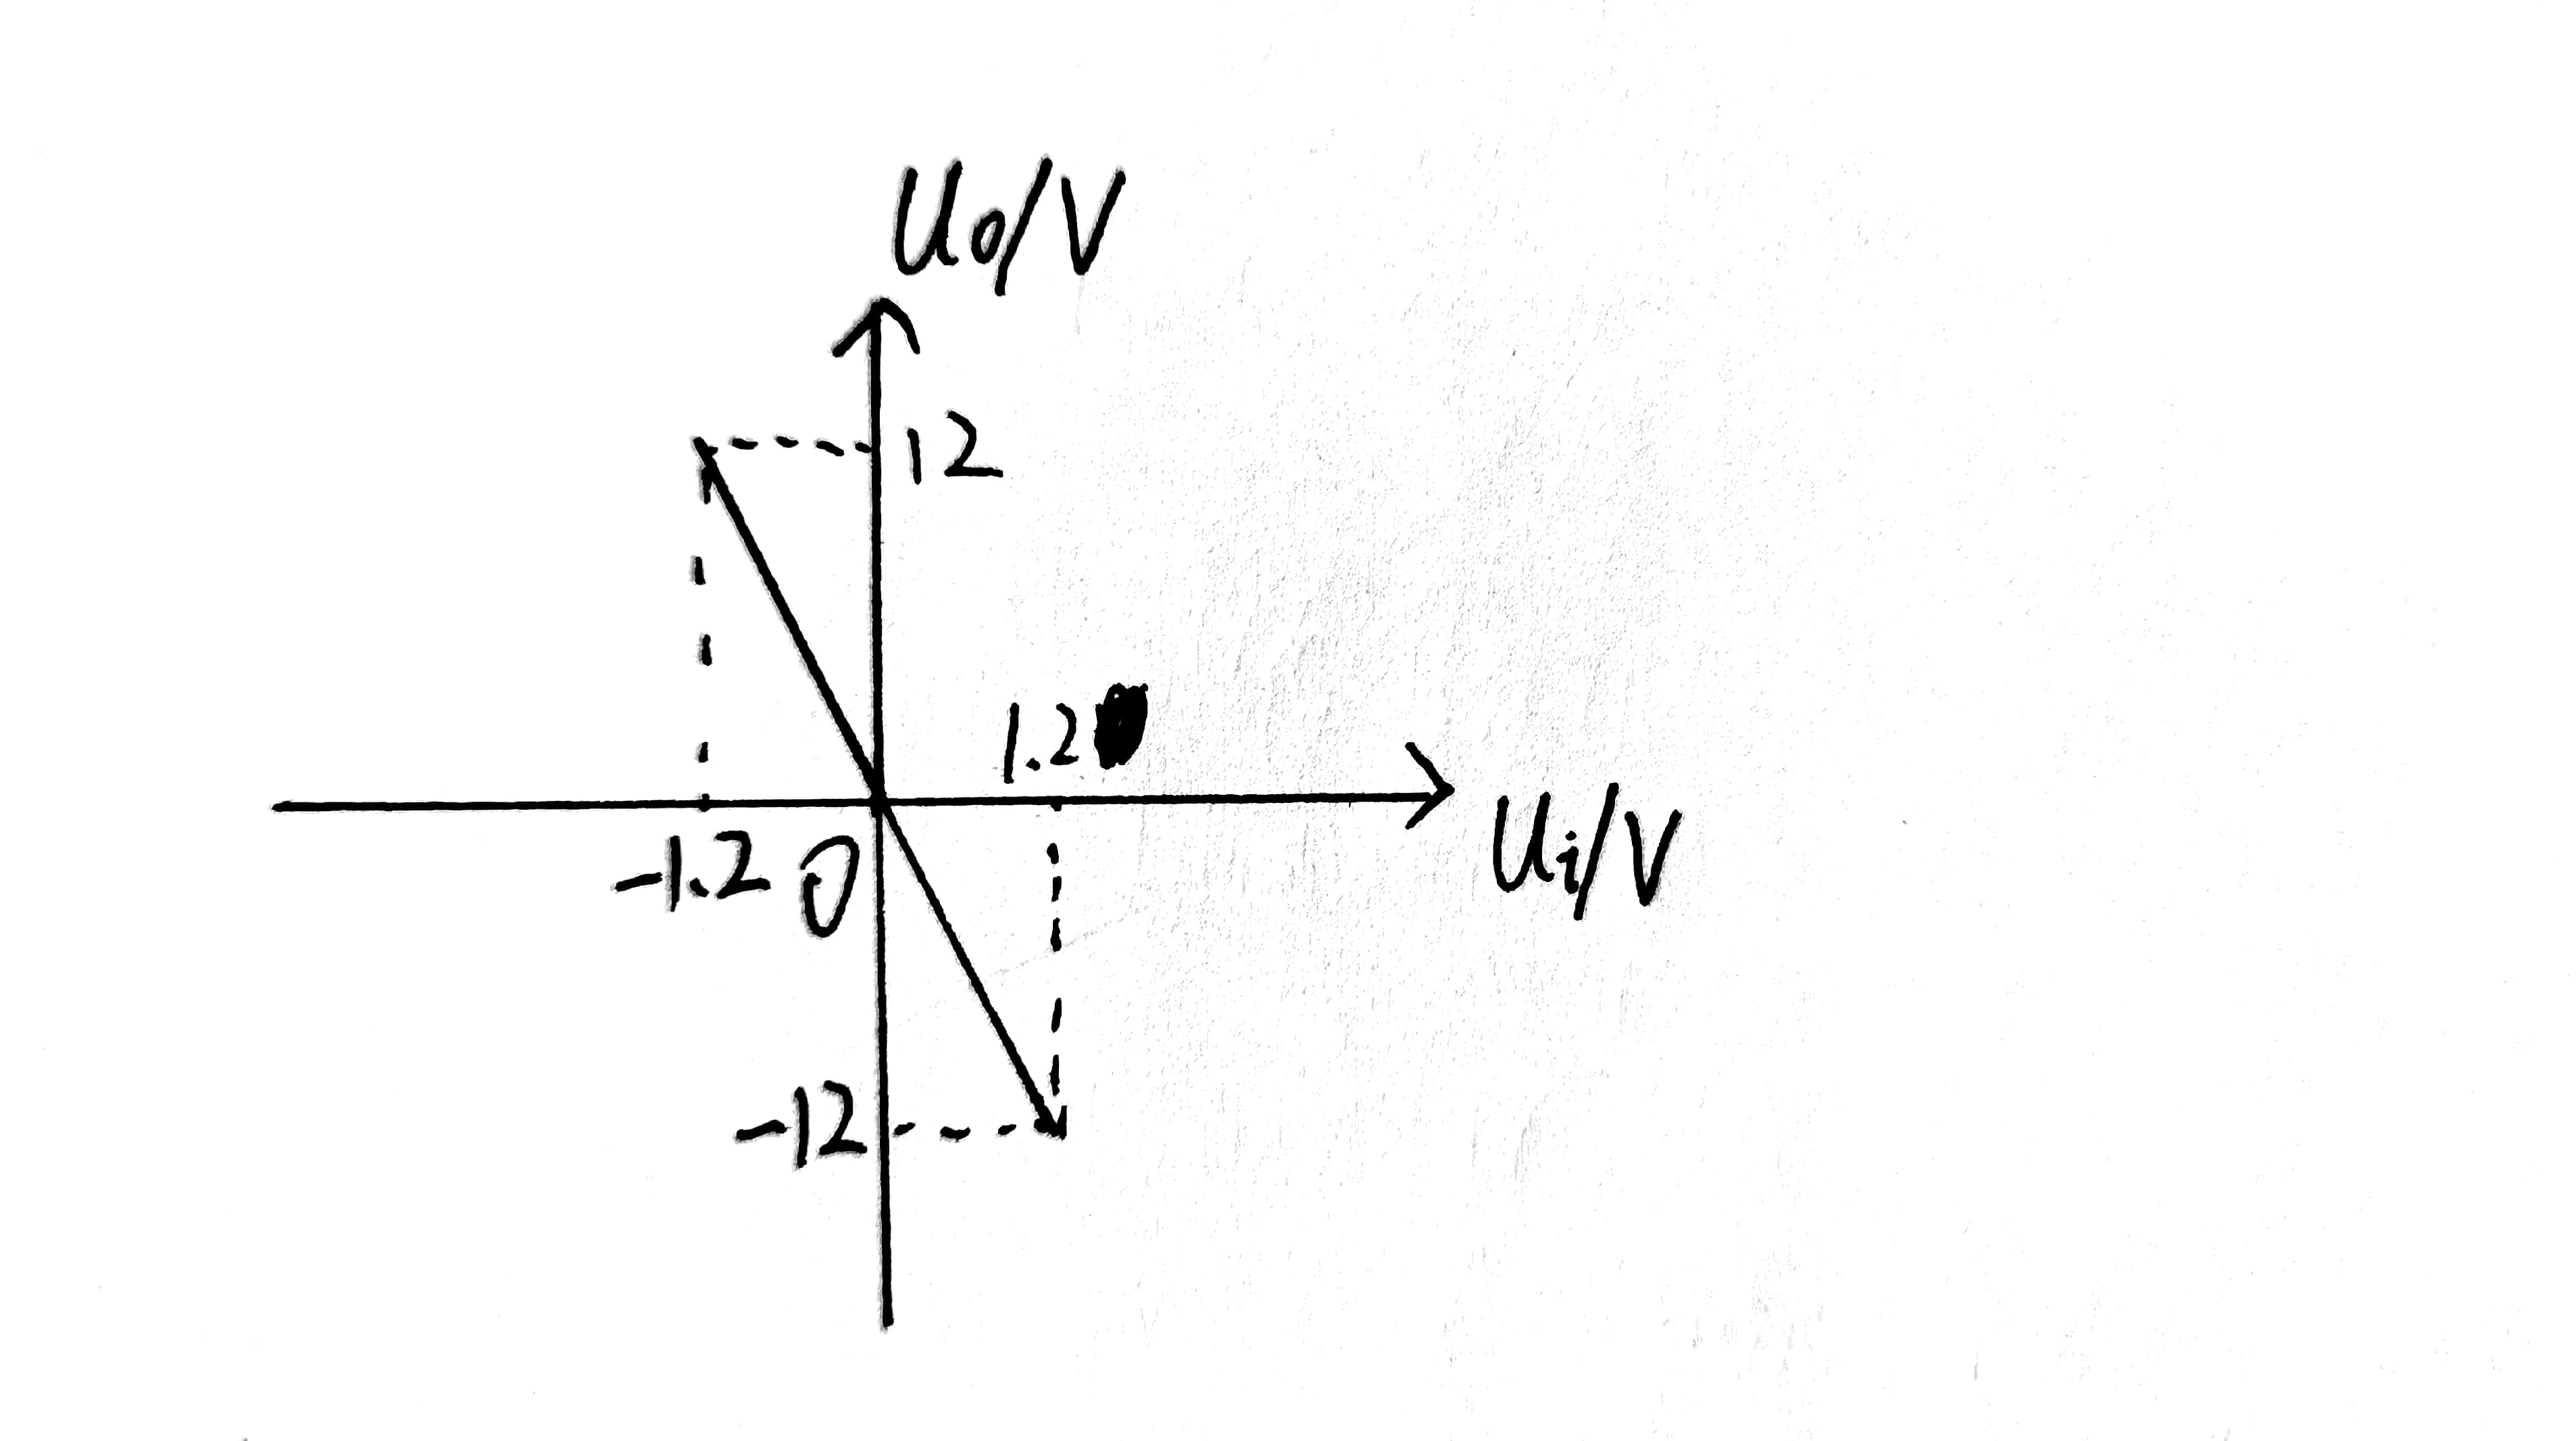 Uo/V
12
1.2
Ui/V
-1.2
0
-12